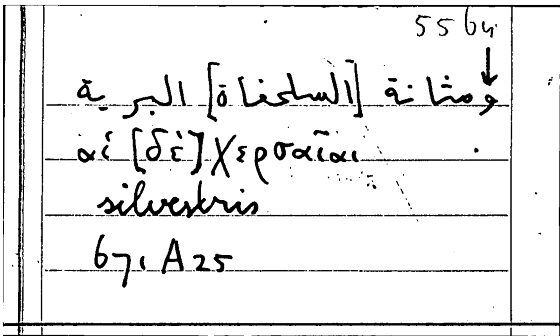 55 b 4
ومثانة [السلحفاة] البرية
αἱ [δὲ] χερσαῖαι
silvestris
671 A 25